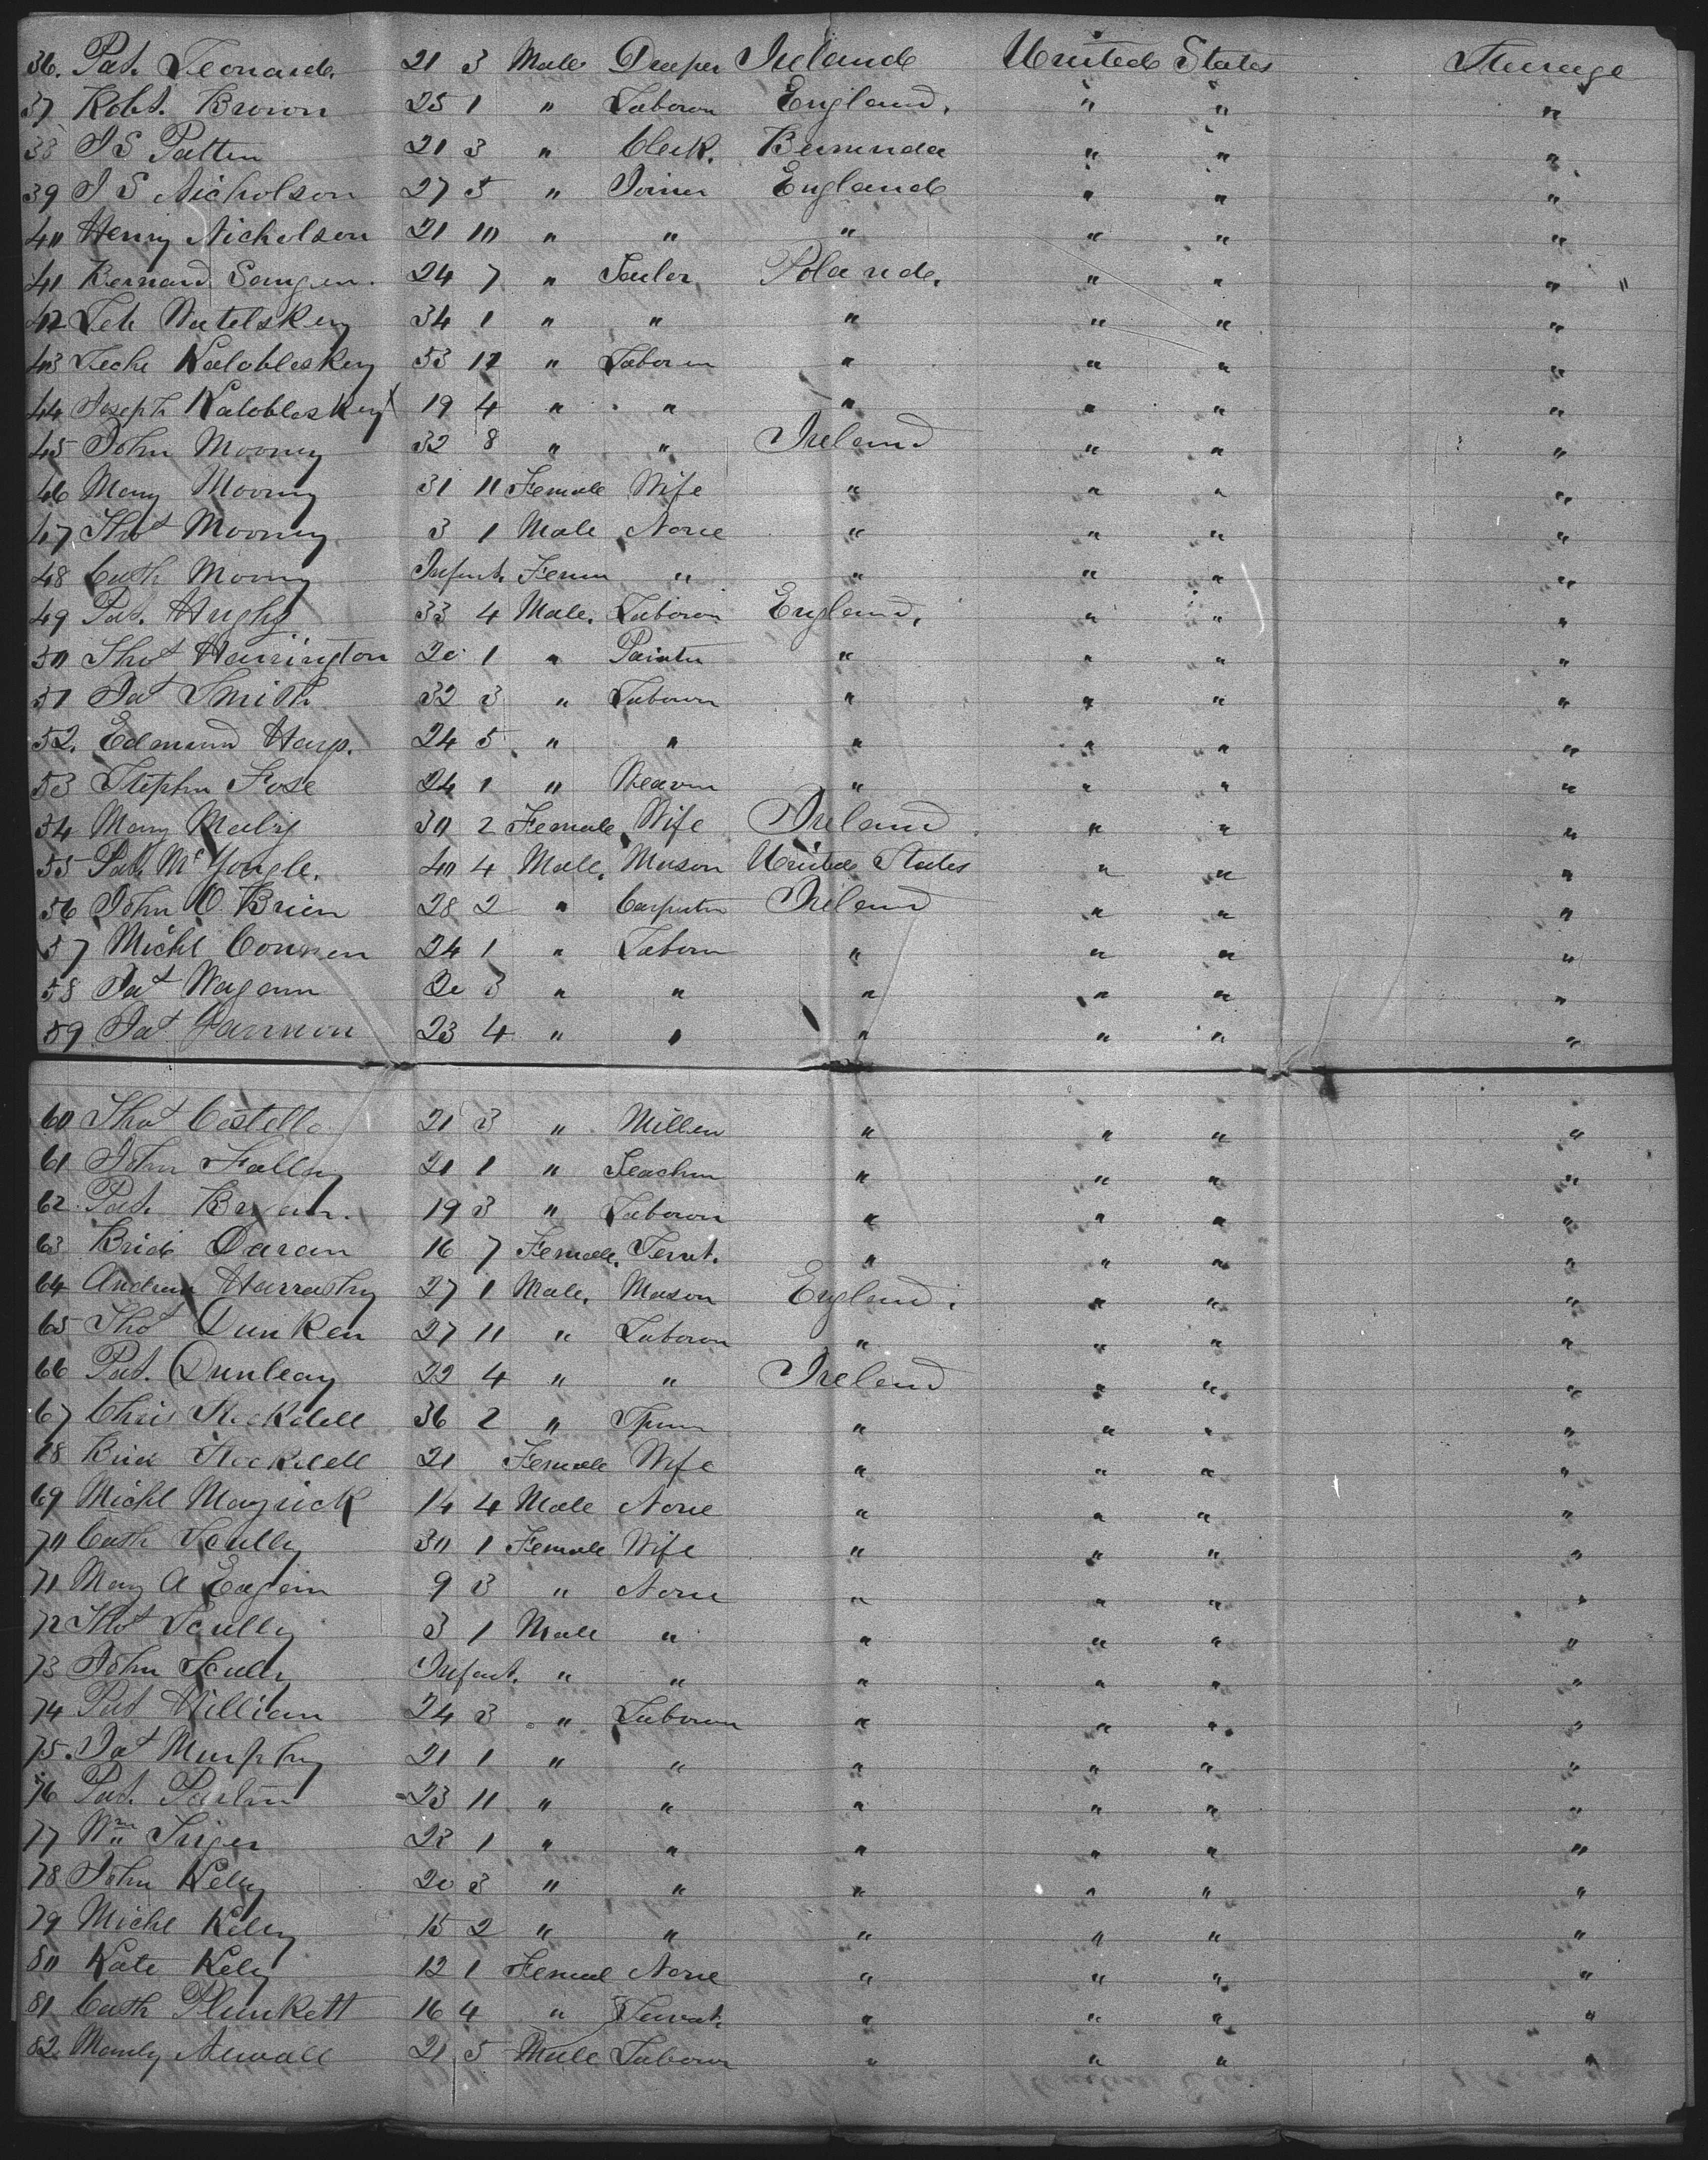 36. Pat. Leonard. 21 3 Male Draper Ireland United States Steerage
37 Robt. Brown 25 1 " Labourer England. " " "
38 J S Patten 21 3 " Clerk. Bermuda " " "
39 J S Nicholson 27 5 " Joiner England " " "
40 Henry Nicholson 21 10 " " " " " "
41 Bernard 24 7 " Tailor Poland. " " "
42 34 1 " " " " " "
43 53 " Labourer " " " "
44 Joseph 19 4 " " " " " "
45 John Mooney 32 8 " " Ireland " " "
46 Mary Mooney 31 11 Female Wife " " " "
47 Thos Mooney 3 1 Male None " " " "
48 Cath Mooney Infant. Fem " " " " "
49 Pat. Hughs 33 4 Male. Labourer England. " " "
50 Thos Harrington 20 1 " Painter " " " "
51 Pat Smith 32 3 " Labourer " " " "
52. Edmund Harp. 24 5 " " " " " "
53 Stephen Fose 24 1 " Weaver " " " "
54 Mary 30 2 Female Wife Ireland " " "
55 Pat. Mc 40 4 Male. Mason United States " " "
56 John O Brien 28 2 " Carpenter Ireland " " "
57 Michl 24 1 " Labourer " " " "
58 Pat 20 3 " " " " " "
59 Pat Gannon 23 4 " " " " " "
60 Thos Costello 21 3 " Miller " " " "
61 John Fallon 21 1 " Teacher " " " "
62 Pat. Bryan. 19 3 " Labourer " " " "
63 Brid Daran 16 7 Female. Servt. " " " "
64 Andrew 27 1 Male. Mason England. " " "
65 Thos Dunken 27 11 " Labourer " " " "
66 Pat. Dunleay 22 4 " " Ireland " " "
67 Chris Stockdell 36 2 " " " " "
68 Brid Stockdell 21 Female Wife " " " "
69 Michl 14 4 Male None " " " "
70 Cath Scully 30 1 Female Wife " " " "
71 Mary A Eagan 9 3 " None " " " "
72 Thos Scully 3 1 Male " " " " "
73 John Scully Infant. " " " " " "
74 Pat 24 3 " Labourer " " " "
75. Pat Murphy 21 1 " " " " " "
76 Pat. 23 11 " " " " " "
77 Wm 1 " " " " " "
78 John Kely 20 3 " " " " " "
79 Michl Kely 15 2 " " " " " "
80 Kate Kely 12 1 Femal None " " " "
81 Cath Plunkett 16 4 " Servt. " " " "
82 21 5 Male Labour " " " "